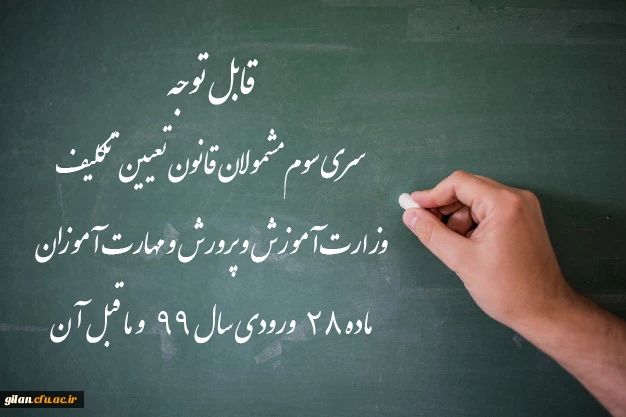 قابل توجه
سری سوم مشمولان قانون تعیین تکلیف
وزارت آموزش و پرورش و مهارت آموزان
ماده ۲۸ ورودی سال ۹۹ و ماقبل آن
gilan.cfu.ac.ir